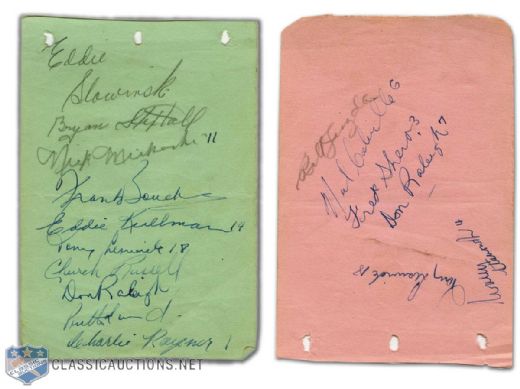 Eddie
Slowinski
Bryan Hextall
Nick Mickoski 11
Frank Boucher
Eddie Kullman 19
Tony Leswick 18
Church Russell
Don Raleigh
Charlie Rayner 1
Neil Colville 6
Fred Shero 3
Don Raleigh 7
Tony Leswick 18
Wally
CLASSICAUCTIONS.NET